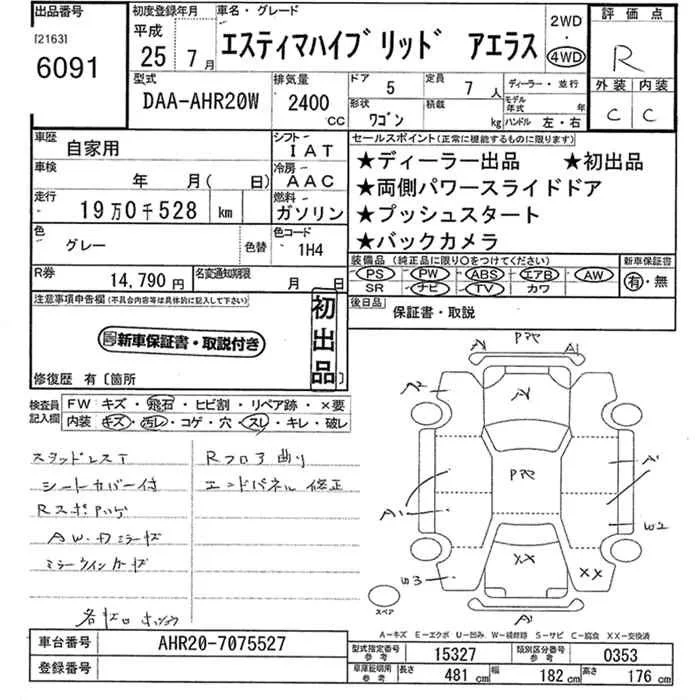 出品番号 初度登録年月 車名・グレード 2WD 評価点
[2163] 平成 エスティマハイブリッド アエラス 4WD R
6091 25年 7月
型式 排気量 ドア 5 定員 7人 ディーラー・並行 外装 内装
DAA-AHR20W 2400cc 形状 ワゴン 積載 kg モデル年式 年 C C
ハンドル 左・右
車歴 自家用 シフト IAT セールスポイント(正常に機能するものに限ります)
車検 年 月( 日) 冷房 AAC ★ディーラー出品 ★初出品
走行 19万0千528 km 燃料 ガソリン ★両側パワースライドドア
★プッシュスタート
色 グレー 色替 色コード 1H4 ★バックカメラ
装備品(純正品に限り○をつけてください) 新車保証書
R券 14,790円 名変通知期限 月 日 PS PW ABS エアB AW 有・無
SR ナビ TV カワ
注意事項申告欄(不具合内容等は具体的に記入して下さい) 初出品 後日品 保証書・取説
新車保証書・取説付き
修復歴 有〔箇所 〕
検査員記入欄 FW キズ・飛石・ヒビ割・リペア跡・×要
内装 キズ・汚レ・コゲ・穴・スレ・キレ・破レ
スタッドレスT Rフロア曲り
シートカバー付 エンドパネル修正
Rスポ
AW・ドアミラーキズ
ミラーウインカーキズ
A1 A1
A2 A
A1 A1
W2
W3 XX XX
A1
スペア
A-キズ E-エクボ U-凹み W-補修跡 S-サビ C-腐食 XX-交換済
車台番号 AHR20-7075527 型式指定番号 参考 15327 類別区分番号 参考 0353
登録番号 車庫証明用 参考 長さ 481cm 幅 182cm 高さ 176cm